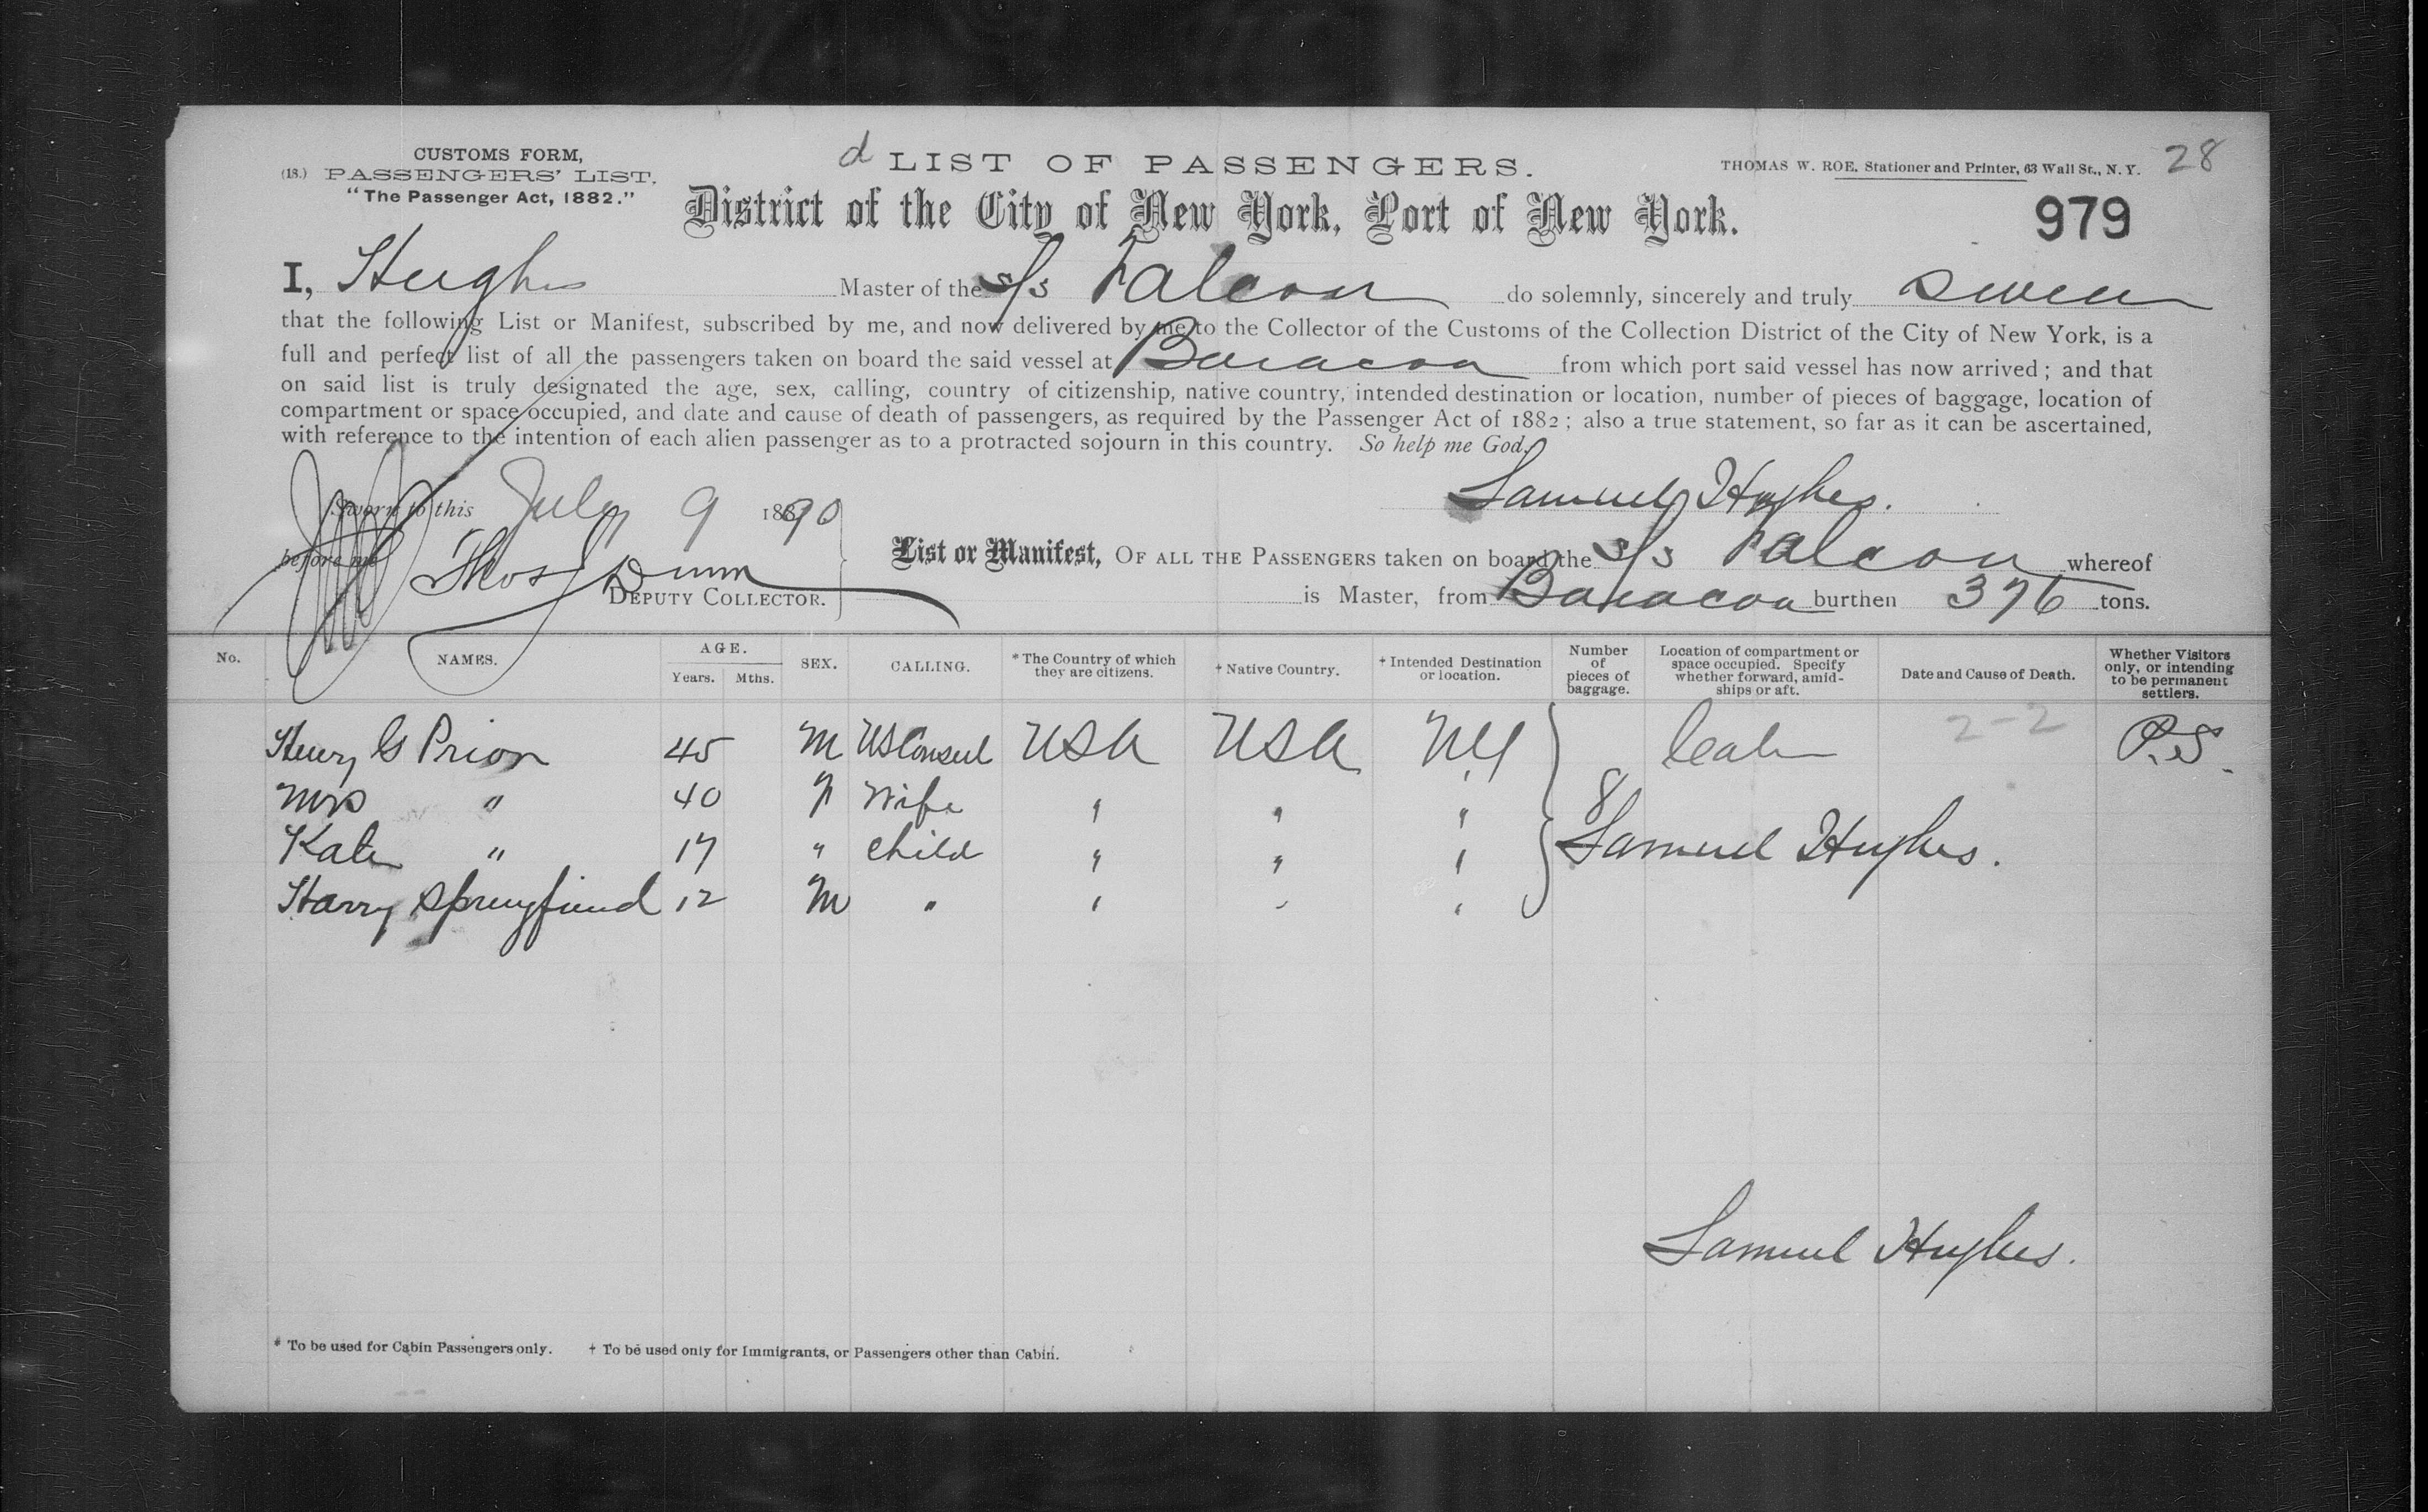 CUSTOMS FORM,
(18.) PASSENGERS' LIST.
"The Passenger Act, 1882."
d LIST OF PASSENGERS.
THOMAS W. ROE, Stationer and Printer, 63 Wall St., N. Y. 28
District of the City of New York, Port of New York.
979
I, Hughes Master of the S/s Falcon do solemnly, sincerely and truly swear
that the following List or Manifest, subscribed by me, and now delivered by me to the Collector of the Customs of the Collection District of the City of New York, is a
full and perfect list of all the passengers taken on board the said vessel at Baracoa from which port said vessel has now arrived; and that
on said list is truly designated the age, sex, calling, country of citizenship, native country, intended destination or location, number of pieces of baggage, location of
compartment or space occupied, and date and cause of death of passengers, as required by the Passenger Act of 1882; also a true statement, so far as it can be ascertained,
with reference to the intention of each alien passenger as to a protracted sojourn in this country. So help me God.
Sworn to this July 9 1890
Samuel Hughes.
before me Thos Dunn
DEPUTY COLLECTOR.
List or Manifest, OF ALL THE PASSENGERS taken on board the S/s Falcon whereof
is Master, from Baracoa burthen 376 tons.
No. NAMES. AGE. Years. Mths. SEX. CALLING. * The Country of which they are citizens. † Native Country. † Intended Destination or location. Number of pieces of baggage. Location of compartment or space occupied. Specify whether forward, amidships or aft. Date and Cause of Death. Whether Visitors only, or intending to be permanent settlers.
Henry G Prior 45 M US Consul USA USA NY Cabin 2-2 P.S.
Mrs " 40 F Wife " " " 8
Kate " 17 " Child " " " Samuel Hughes.
Harry 12 M " " " "
Samuel Hughes.
* To be used for Cabin Passengers only. † To be used only for Immigrants, or Passengers other than Cabin.